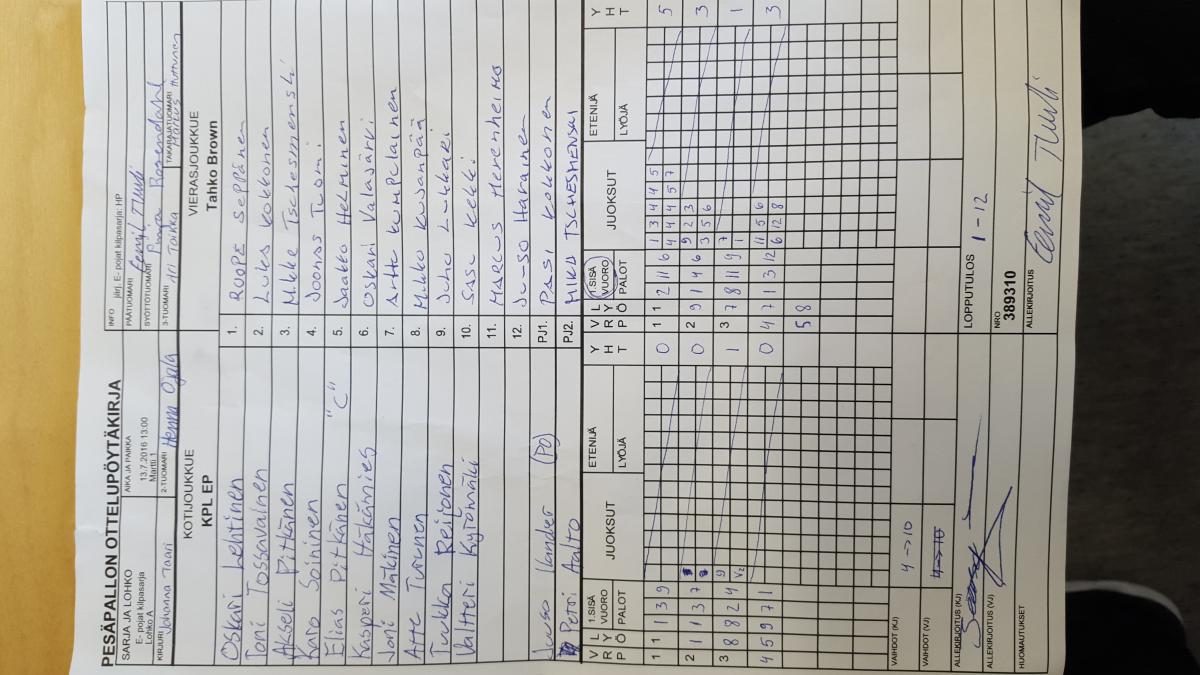 PESÄPALLON OTTELUPÖYTÄKIRJA
INFO järj. E- pojat kilpasarja: HP
SARJA JA LOHKO
E- pojat kilpasarja
Lohko A
AIKA JA PAIKKA
13.7.2016 13:00
Martti 1
PÄÄTUOMARI
SYÖTTÖTUOMARI Pinja Rosendahl
KIRJURI Johanna Taari
2-TUOMARI Henna Ojala
3-TUOMARI Ari Toikka
TAKARAJATUOMARI Markus Huttunen
KOTIJOUKKUE
KPL EP
VIERASJOUKKUE
Tahko Brown
Oskari Lehtinen 1. RUOPE SEPPÄNEN
Toni Tossavainen 2. Lukas Kokkonen
Akseli Pitkänen 3. Mikke Tschesmenski
Karo Soininen 4. Joonas Tuomi
Elias Pitkänen "C" 5. Jaakko Helminen
Kasperi Häkämies 6. Oskari Valasjärvi
Joni Mäkinen 7. Artte Kumpulainen
Atte Turunen 8. Mikko Kusenpää
Tuukka Reijonen 9. Juho Lukkari
Valtteri Kytömäki 10. Sasu Kekki
11. MARCUS MERENHEIMO
12. Juuso Haranen
Juuso Ikander (PO) PJ1. PASI KOKKONEN
Petri Aalto PJ2. MIKA TSCHESMENSKI
V R P L Y Ö 1.SISÄ VUORO PALOT JUOKSUT ETENIJÄ LYÖJÄ Y H T V R P L Y Ö 1.SISÄ VUORO PALOT JUOKSUT ETENIJÄ LYÖJÄ Y H T
1 1 1 3 9 0 1 1 2 11 6 1 3 4 4 5 5
4 4 4 5 7
2 1 1 3 7 0 2 9 1 4 6 9 2 3 3
3 5 6
3 8 8 2 4 9 1 3 7 8 11 9 7 1
V2 1
4 5 9 7 1 0 4 7 1 3 12 11 5 6 3
6 12 8
5 8
VAIHDOT (KJ) 4 → 10
VAIHDOT (VJ) 4 → 10
LOPPUTULOS 1 - 12
ALLEKIRJOITUS (KJ)
ALLEKIRJOITUS (VJ)
NRO
389310
HUOMAUTUKSET
ALLEKIRJOITUS